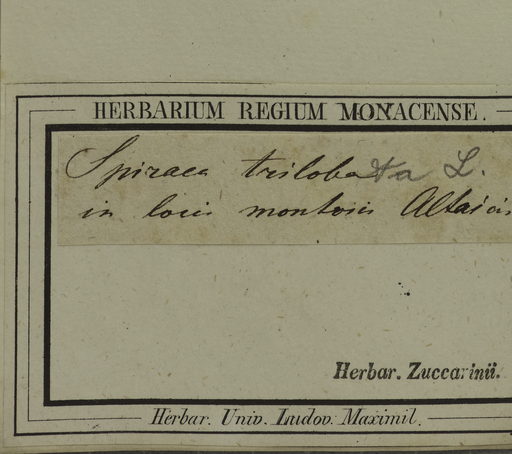 HERBARIUM REGIUM MONACENSE.
Spiraea trilobata L.
in locis montosis Altaicis
Herbar. Zuccarinii.
Herbar. Univ. Ludov. Maximil.